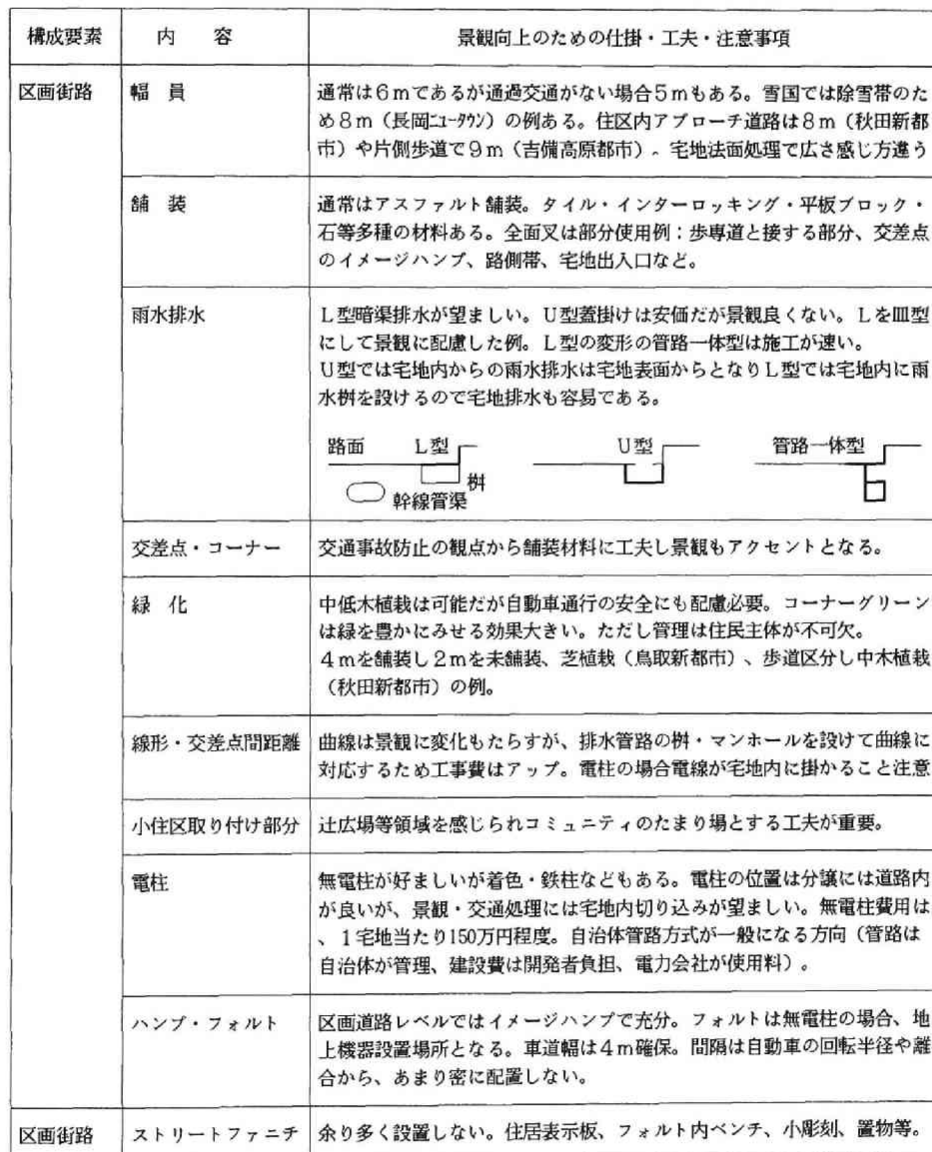 構成要素 内 容 景観向上のための仕掛・工夫・注意事項
区画街路 幅 員 通常は6mであるが通過交通がない場合5mもある。雪国では除雪帯のた
め8m（長岡ﾆｭｰﾀｳﾝ）の例ある。住区内アプローチ道路は8m（秋田新都
市）や片側歩道で9m（吉備高原都市）。宅地法面処理で広さ感じ方違う
舗 装 通常はアスファルト舗装。タイル・インターロッキング・平板ブロック・
石等多種の材料ある。全面又は部分使用例：歩専道と接する部分、交差点
のイメージハンプ、路側帯、宅地出入口など。
雨水排水 L型暗渠排水が望ましい。U型蓋掛けは安価だが景観良くない。Lを皿型
にして景観に配慮した例。L型の変形の管路一体型は施工が速い。
U型では宅地内からの雨水排水は宅地表面からとなりL型では宅地内に雨
水桝を設けるので宅地排水も容易である。
路面 L型 U型 管路一体型
桝
幹線管渠
交差点・コーナー 交通事故防止の観点から舗装材料に工夫し景観もアクセントとなる。
緑 化 中低木植栽は可能だが自動車通行の安全にも配慮必要。コーナーグリーン
は緑を豊かにみせる効果大きい。ただし管理は住民主体が不可欠。
4mを舗装し2mを未舗装、芝植栽（鳥取新都市）、歩道区分し中木植栽
（秋田新都市）の例。
線形・交差点間距離 曲線は景観に変化もたらすが、排水管路の桝・マンホールを設けて曲線に
対応するため工事費はアップ。電柱の場合電線が宅地内に掛かること注意
小住区取り付け部分 辻広場等領域を感じられコミュニティのたまり場とする工夫が重要。
電柱 無電柱が好ましいが着色・鉄柱などもある。電柱の位置は分譲には道路内
が良いが、景観・交通処理には宅地内切り込みが望ましい。無電柱費用は
、1宅地当たり150万円程度。自治体管路方式が一般になる方向（管路は
自治体が管理、建設費は開発者負担、電力会社が使用料）。
ハンプ・フォルト 区画道路レベルではイメージハンプで充分。フォルトは無電柱の場合、地
上機器設置場所となる。車道幅は4m確保。間隔は自動車の回転半径や離
合から、あまり密に配置しない。
区画街路 ストリートファニチ 余り多く設置しない。住居表示板、フォルト内ベンチ、小彫刻、置物等。